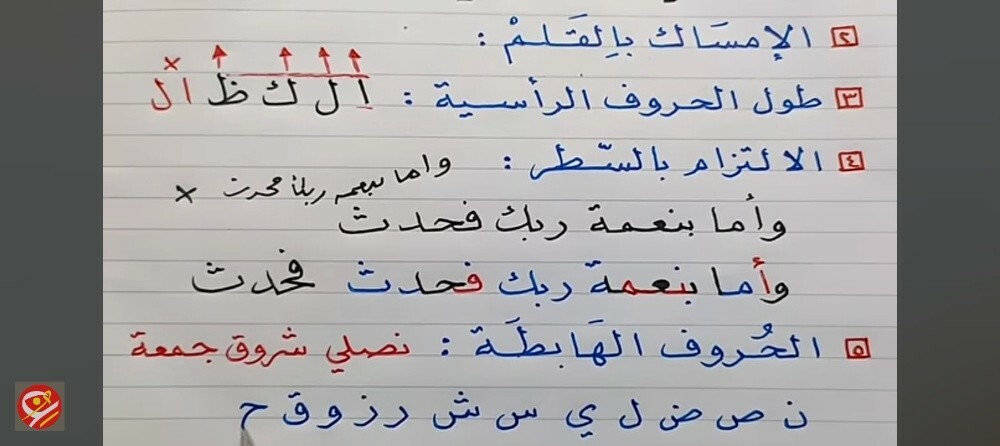 ٢ الإمسَاك بالقَلمْ :
٣ طول الحروف الرأسية : ا ل ك ظ ا ل ×
٤ الالتزام بالسّطر :
واما بنعمه ربك فحدث ×
وأما بنعمة ربك فحدث
وأما بنعمة ربك فحدث فحدث
٥ الحُروف الهَابطَة : نصلي شروق جمعة
ن ص ض ل ي س ش ر ز و ق ح